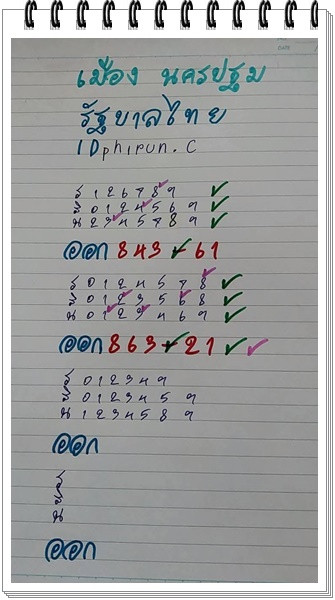 เมือง นครปฐม
รัฐบาลไทย
IDphirun.c
ร 1 2 6 7 8 9 ✓
สิ 0 1 2 4 5 6 9 ✓
น 2 3 4 5 7 8 9 ✓
ออก 843 - 61
ร 0 1 2 4 5 7 8 ✓
สิ 0 1 2 3 5 6 8 ✓
น 0 1 2 3 4 6 9 ✓
ออก 863 - 21 ✓ ✓
ร 0 1 2 3 4 9
สิ 0 1 2 3 4 5 9
น 1 2 3 4 5 8 9
ออก
ร
สิ
น
ออก